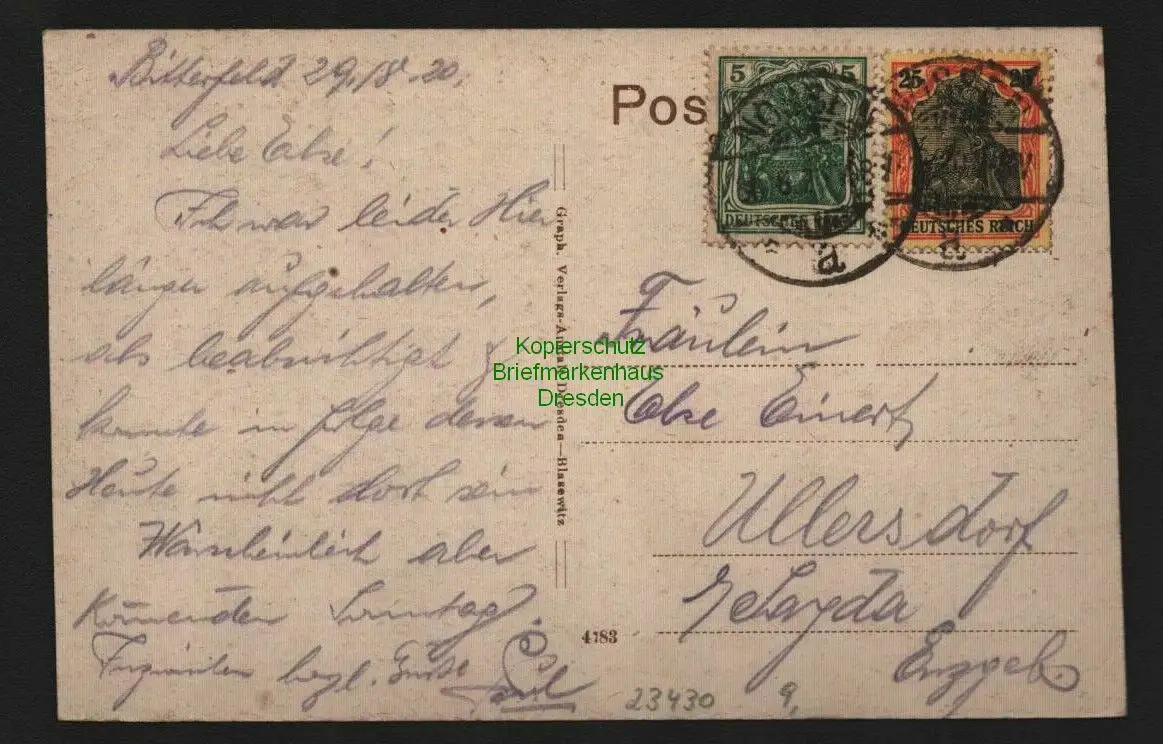 Bitterfeld 29./8.20.
Liebe Else!
Ich war leider Hier
länger aufgehalten,
als beabsichtigt &
konnte in folge dessen
Heute nicht dort sein
Warscheinlich aber
Komenden Sonntag.
Inzwischen herzl. Grüße
Paul
Pos
5 5
DEUTSCHES REICH
25 25
DEUTSCHES REICH
a
a
Graph. Verlags-Anstalt Dresden—Blasewitz
Kopierschutz
Briefmarkenhaus
Dresden
Fräulein
Else Einert
Ullersdorf
Sayda
Erzgeb.
4783
23430 9,